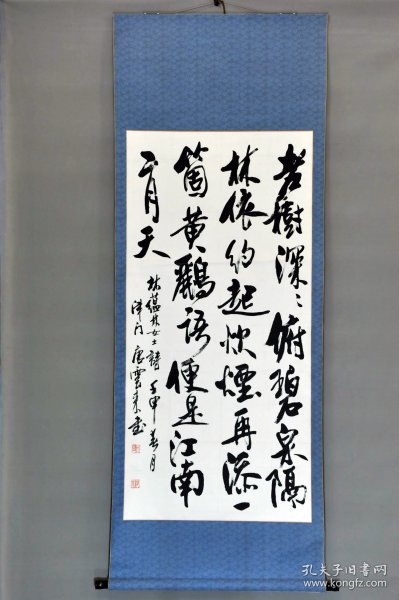 老樹深〻俯碧泉隔
林依約起炊煙再添一
箇黃鸝語便是江南
二月天
林蘊林女士詩 壬申春月
津門 唐雲來書
孔夫子旧书网
www.kongfz.com